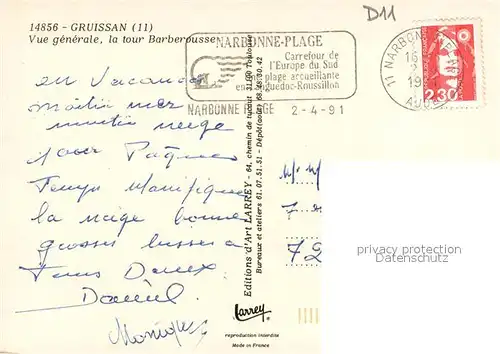 14856 - GRUISSAN (11)
Vue générale, la tour Barberousse
D11
NARBONNE-PLAGE
Carrefour de
l'Europe du Sud
plage accueillante
en Languedoc-Roussillon
NARBONNE PLAGE 2-4-91
11 NARBONNE
AUDE
2,30
en Vacances
matin mer
neige
pour Pâques
Temps Manifique
la neige bonne
grosses bisses a
Tous Deux
Daniel
Monique
Editions d'Art LARREY - 64, chemin de tucaut 31100 Toulouse
Bureaux et ateliers 61.07.51.51 - Dépôt(aude) 68.28.30.42
M. M
7
72
Larrey
reproduction interdite
Made in France
Image protégée
(Copyright)